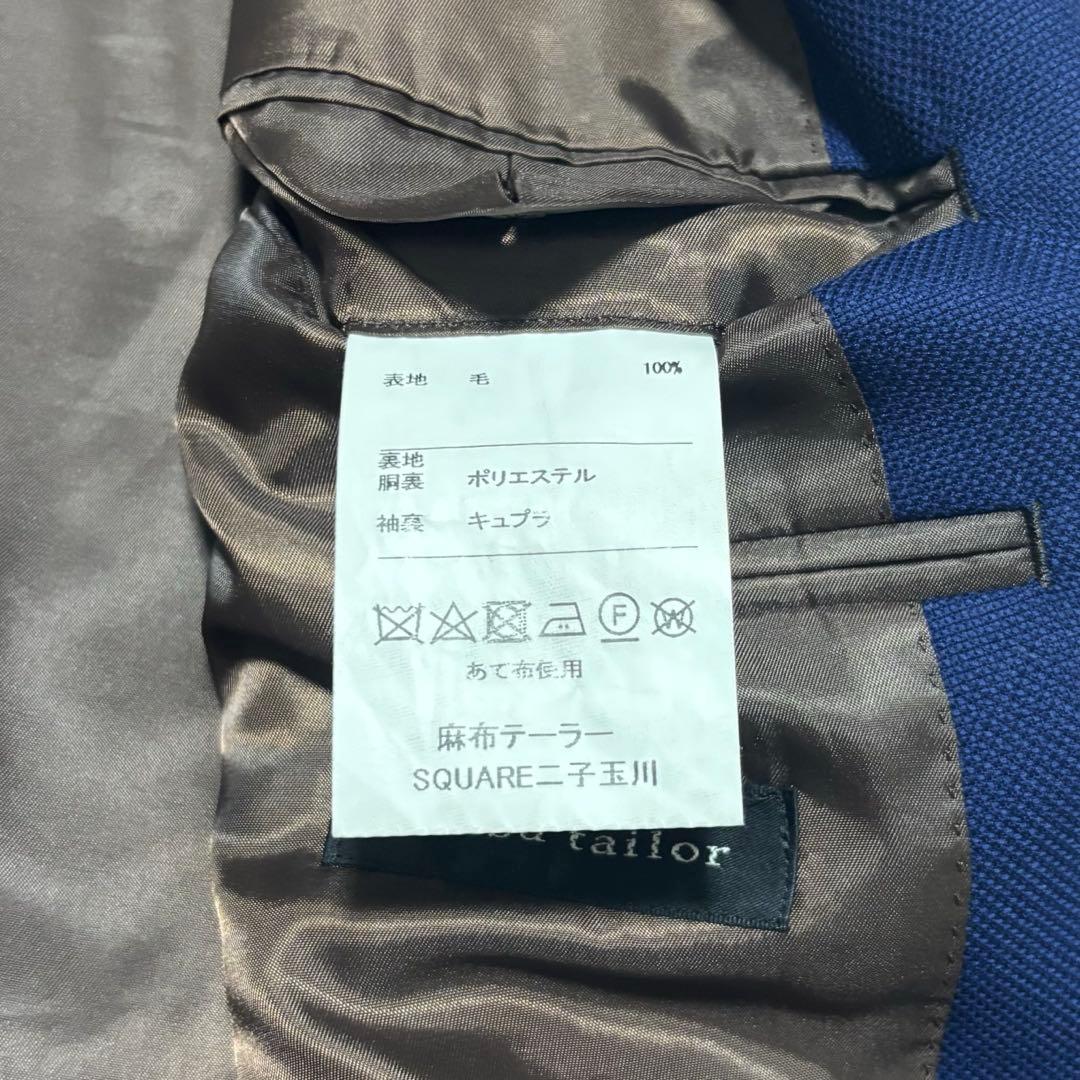 表地 毛 100%
裏地
胴裏 ポリエステル
袖裏 キュプラ
F W
あて布使用
麻布テーラー
SQUARE二子玉川
tailor